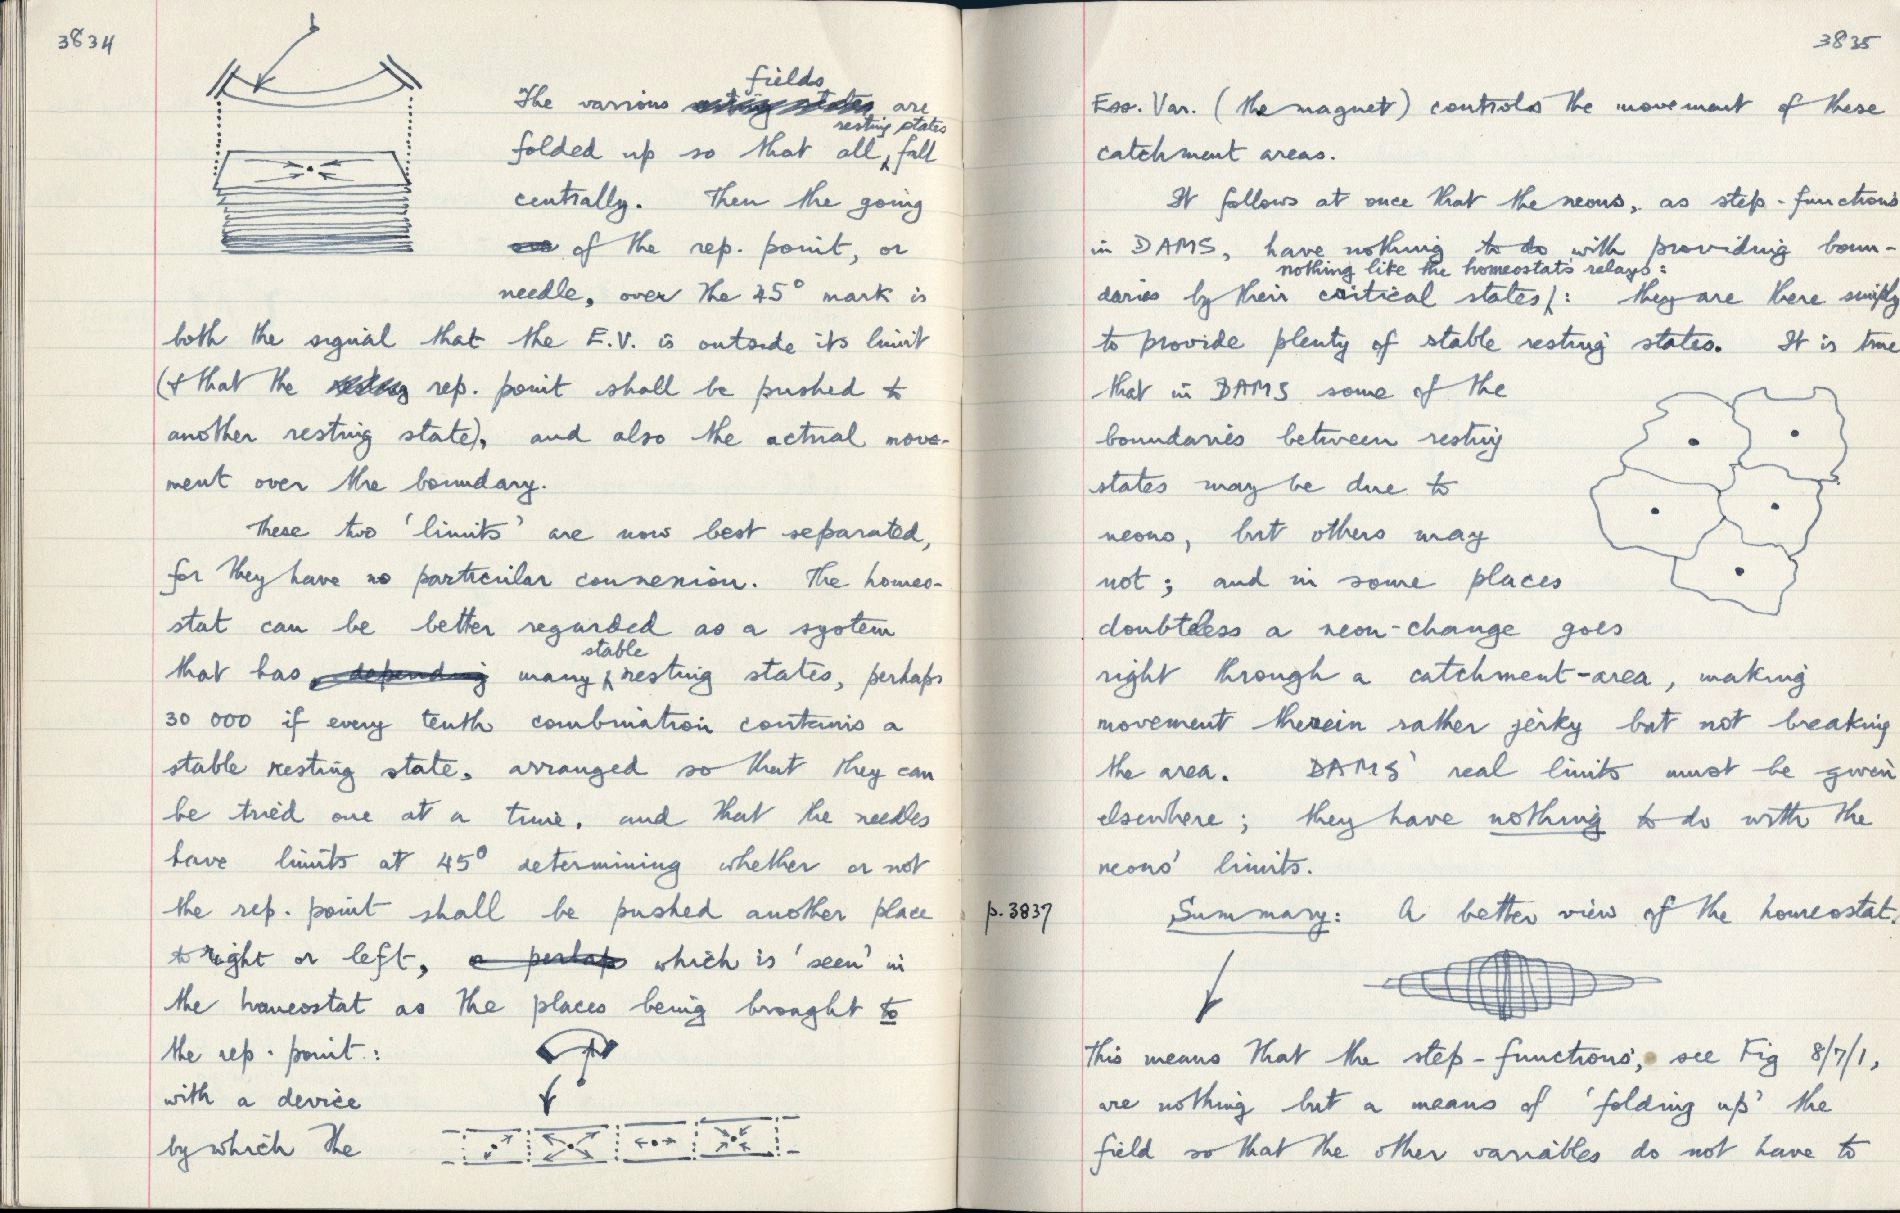 3834
The various fields are
folded up so that all resting states fall
centrally. Then the going
of the rep. point, or
needle, over the 45° mark is
both the signal that the E.V. is outside its limit
(& that the rep. point shall be pushed to
another resting state), and also the actual move-
ment over the boundary.
These two 'limits' are now best separated,
for they have no particular connexion. The homeo-
stat can be better regarded as a system
that has many stable resting states, perhaps
30 000 if every tenth combination contains a
stable resting state, arranged so that they can
be tried one at a time, and that the needles
have limits at 45° determining whether or not
the rep. point shall be pushed another place
to right or left, which is 'seen' in
the homeostat as the places being brought to
the rep. point:
with a device
by which the
3835
Ess. Var. (the magnet) controls the movement of these
catchment areas.
It follows at once that the neons, as step-functions
in DAMS, have nothing to do with providing boun-
daries by their critical states, nothing like the homeostat's relays: they are there simply
to provide plenty of stable resting states. It is true
that in DAMS some of the
boundaries between resting
states may be due to
neons, but others may
not; and in some places
doubtless a neon-change goes
right through a catchment-area, making
movement therein rather jerky but not breaking
the area. DAMS' real limits must be given
elsewhere; they have nothing to do with the
neons' limits.
p. 3837
Summary: A better view of the homeostat.
This means that the step-functions, see Fig 8/7/1,
are nothing but a means of 'folding up' the
field so that the other variables do not have to